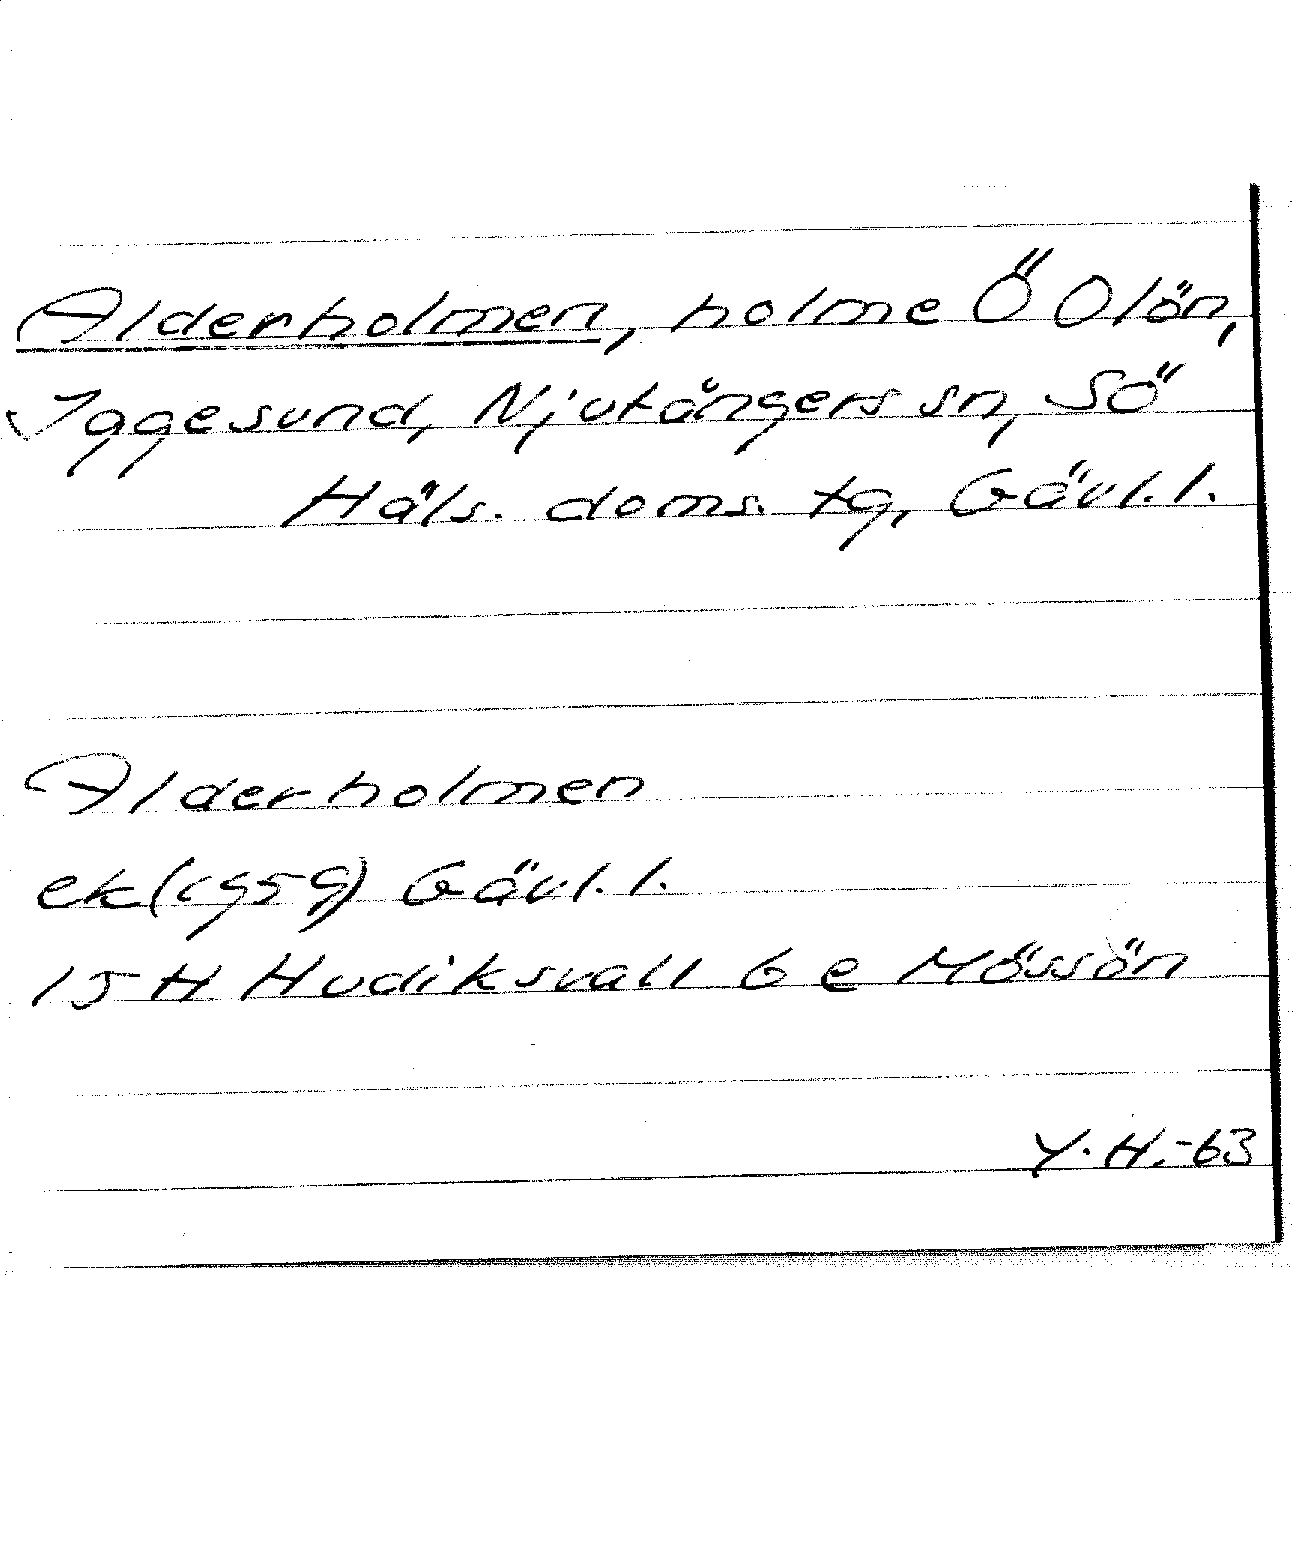 Alderholmen, holme Ö Olön,
Iggesund, Njutångers sn, SÖ
Häls. doms. tg, Gävl. l.
Alderholmen
ek (1959) Gävl. l.
15 H Hudiksvall 6 e Mössön
Y. H. -63